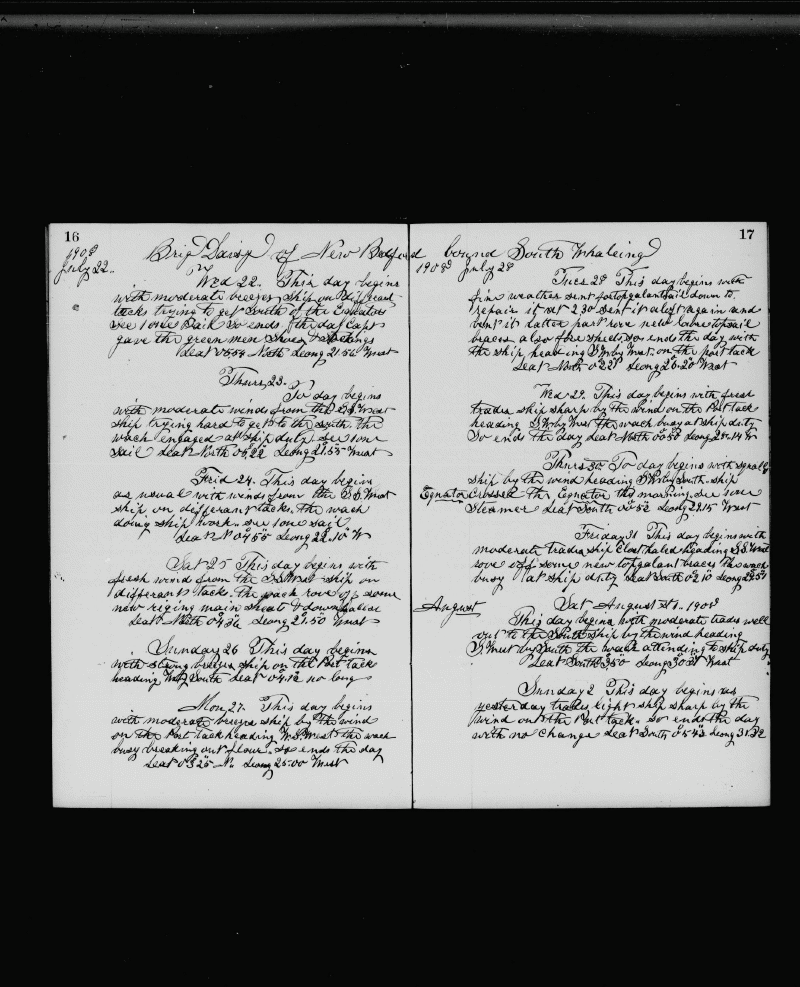 16
Brig Daisy of New Bedford
1908
July 22
Wed 22. This day begins
with moderate breeges ship on different
tacks trying to get South of the Equator
see 1 one Sail so ends the day Capt
gave the green men Shoes &
Leat North Leong 21.56 West
Thurs 23. To day begins
with moderate winds from the S.S. West
ship trying hard to get to the south the
wach engaged at ship duty see 1 one
sail Leat North Leong 21.55 West
Frid 24. This day begins
as usual with winds from the S.S. West
ship on differant tacks. the wach
doing ship work. see 1 one sail
Leat N Leong 22.10 W
Sat 25 This day begins with
fresh wind from the ship on
differant tacks. the wach rove of some
new riging main sheat &
Leat North Leong 21.50 West
Sunday 26 This day begins
with strong breeges ship on the Port tack
heading South Leat no long
Mon 27. This day begins
with moderate breeges ship by the wind
on the Port tack heading W.S. West the wach
busy breaking out flour. so ends the day
Leat N. Leong 25.00 West
17
bound South Whaleing
1908 July 28
Tues 28 This day begins with
fine weather sent down to
repair it at 2.30 sent it aloft again and
bent it latter part rove new
braces also fore sheet so ends the day with
the ship heading by West. on the port tack
Leat North Leong 26.20 West
Wed 29. This day begins with fresh
trades ship sharp by the wind on the Port tack
heading West the wach busy at ship duty
So ends the day Leat North Leong W
Thurs 30 To day begins with squaly
ship by the wind heading South. ship
Equator Crossed the Equator this morning. see 1 one
Steamer Leat South Leong 29.15 West
Friday 31 This day begins with
moderate trades ship heading S.S. West
rove off some new topgalant braces the wach
busy at ship duty Leat South Leong
August
Sat August 1st. 1908
This day begins with moderate trades well
out to the South ship by the wind heading
S. West by South the wach attending to ship duty
Leat South Leong West
Sunday 2 This day begins as
yesterday trades light ship sharp by the
wind on the Port tack. so ends the day
with no change Leat South Leong 31.32